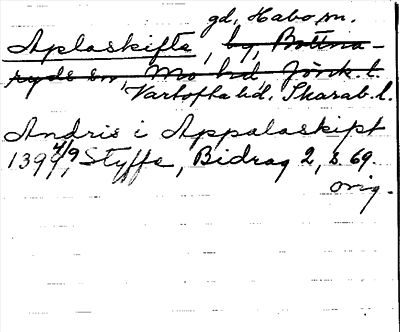 gd, Habo sn.
Aplaskifte, by, Bottna-
ryds sn, Mo hd Jönk. l.
Vartofta hd, Skarab. l.
Andris i Appalaskipt
1399 4/9, Styffe, Bidrag 2, s 69.
orig.